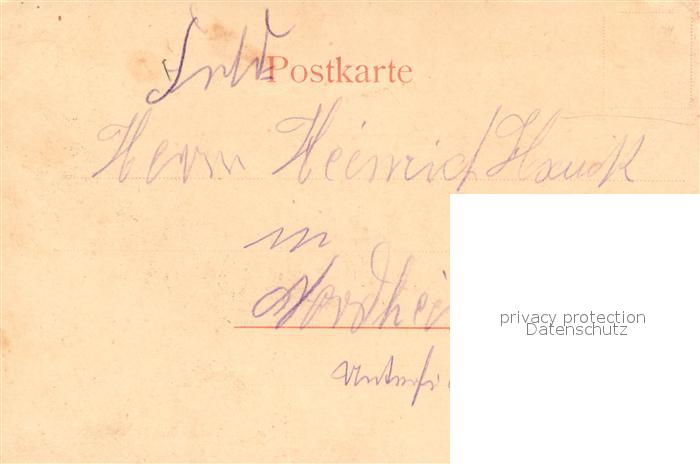 Postkarte
Herrn Heinrich Hauck
in
Nordhei
privacy protection
Datenschutz